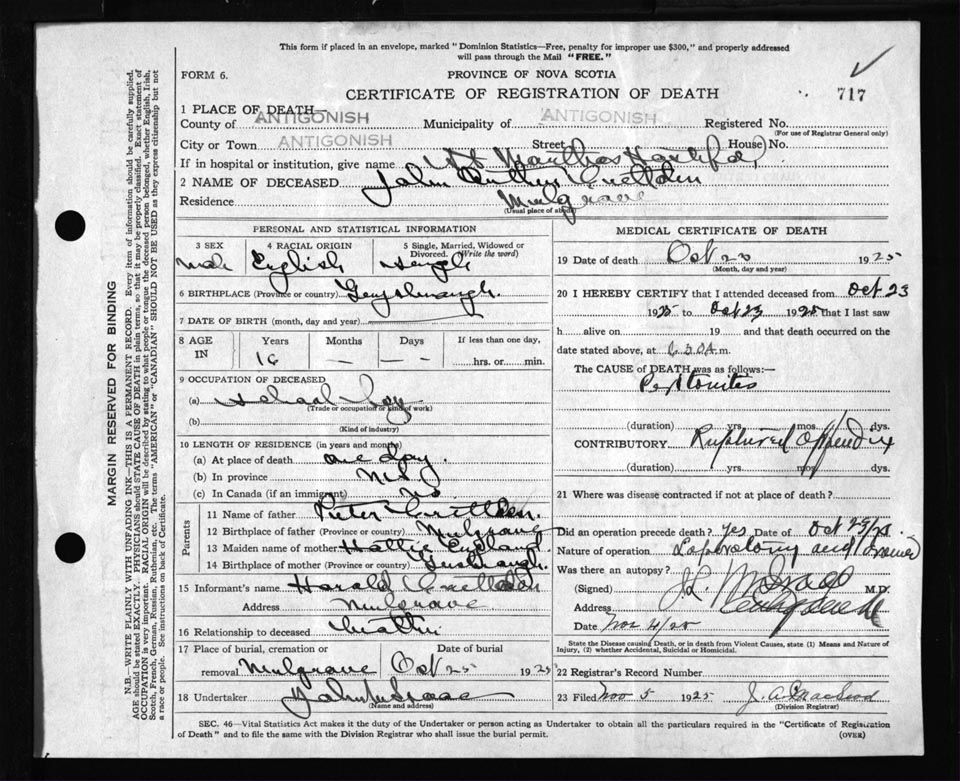 This form if placed in an envelope, marked "Dominion Statistics—Free, penalty for improper use $300," and properly addressed
will pass through the Mail "FREE."
FORM 6.
PROVINCE OF NOVA SCOTIA
CERTIFICATE OF REGISTRATION OF DEATH
717
1 PLACE OF DEATH—
County of ANTIGONISH Municipality of ANTIGONISH Registered No.
(For use of Registrar General only)
City or Town ANTIGONISH Street House No.
If in hospital or institution, give name St Marthas Hospital
2 NAME OF DECEASED John
Residence Mulgrave
(Usual place of abode)
PERSONAL AND STATISTICAL INFORMATION
3 SEX 4 RACIAL ORIGIN 5 Single, Married, Widowed or
Divorced. (Write the word)
Male English Single
6 BIRTHPLACE (Province or country) Guysborough
7 DATE OF BIRTH (month, day and year)
8 AGE IN Years Months Days If less than one day,
16 — — hrs. or min.
9 OCCUPATION OF DECEASED
(a) School boy
(Trade or occupation or kind of work)
(b)
(Kind of industry)
10 LENGTH OF RESIDENCE (in years and months)
(a) At place of death one day.
(b) In province
(c) In Canada (if an immigrant)
Parents
11 Name of father Peter
12 Birthplace of father (Province or country) Mulgrave
13 Maiden name of mother Hattie
14 Birthplace of mother (Province or country)
15 Informant's name Harold
Address Mulgrave
16 Relationship to deceased
17 Place of burial, cremation or Date of burial
removal Mulgrave Oct 25 1925
18 Undertaker
(Name and address)
MEDICAL CERTIFICATE OF DEATH
19 Date of death Oct 1925
(Month, day and year)
20 I HEREBY CERTIFY that I attended deceased from Oct 23
1925 to Oct 23 1925 that I last saw
h alive on 19 and that death occurred on
date stated above, at 6.30 A.m.
The CAUSE of DEATH was as follows:
Peritonitis
(duration) yrs. mos. dys.
CONTRIBUTORY Ruptured Appendix
(duration) yrs. mos. dys.
21 Where was disease contracted if not at place of death?
Did an operation precede death? Yes Date of Oct
Nature of operation Laparotomy and
Was there an autopsy?
(Signed) M.D.
Address
Date Nov
State the Disease causing Death, or in death from Violent Causes, state (1) Means and Nature of
Injury, (2) whether Accidental, Suicidal or Homicidal.
22 Registrar's Record Number
23 Filed Nov 5 1925 J. A. MacLeod
(Division Registrar)
SEC. 46—Vital Statistics Act makes it the duty of the Undertaker or person acting as Undertaker to obtain all the particulars required in the "Certificate of Registration
of Death" and to file the same with the Division Registrar who shall issue the burial permit.
(OVER)
MARGIN RESERVED FOR BINDING
N.B.—WRITE PLAINLY WITH UNFADING INK—THIS IS A PERMANENT RECORD. Every item of information should be carefully supplied.
AGE should be stated EXACTLY. PHYSICIANS should STATE CAUSE OF DEATH in plain terms, so that it may be properly classified. Exact statement of
OCCUPATION is very important. RACIAL ORIGIN will be described by stating to what people or tongue the deceased person belonged, whether English, Irish,
Scotch, French, German, Russian, Ruthenian, etc. The terms "AMERICAN" or "CANADIAN" SHOULD NOT BE USED as they express citizenship but not
a race or people. See instructions on back of Certificate.